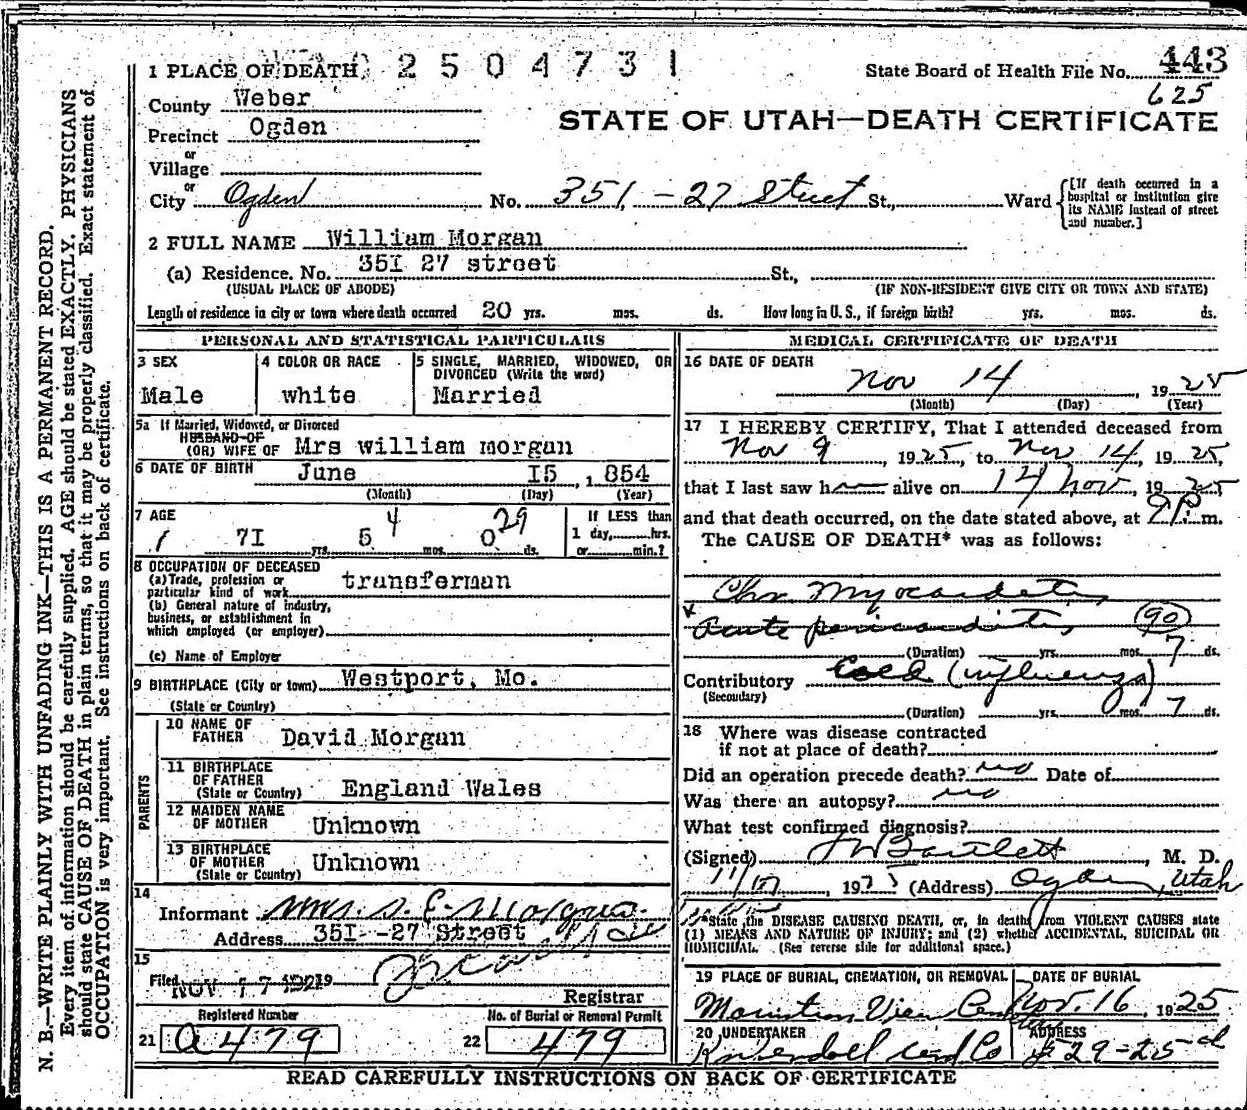 2504731
1 PLACE OF DEATH
State Board of Health File No. 443
625
County Weber
STATE OF UTAH—DEATH CERTIFICATE
Precinct Ogden
or
Village
or
City Ogden No. 351 - 27 Street St., Ward
[If death occurred in a hospital or institution give its NAME instead of street and number.]
2 FULL NAME William Morgan
(a) Residence. No. 35I 27 street St.,
(USUAL PLACE OF ABODE) (IF NON-RESIDENT GIVE CITY OR TOWN AND STATE)
Length of residence in city or town where death occurred 20 yrs. mos. ds. How long in U. S., if foreign birth? yrs. mos. ds.
PERSONAL AND STATISTICAL PARTICULARS
3 SEX
Male
4 COLOR OR RACE
white
5 SINGLE, MARRIED, WIDOWED, OR
DIVORCED (Write the word)
Married
5a If Married, Widowed, or Divorced
HUSBAND OF
(OR) WIFE OF Mrs william morgan
6 DATE OF BIRTH June I5, 1854
(Month) (Day) (Year)
7 AGE
4 29
7I yrs. 5 mos. 0 ds.
If LESS than
1 day, hrs.
or min.?
8 OCCUPATION OF DECEASED
(a) Trade, profession or
particular kind of work transferman
(b) General nature of industry,
business, or establishment in
which employed (or employer)
(c) Name of Employer
9 BIRTHPLACE (City or town) Westport, Mo.
(State or Country)
PARENTS
10 NAME OF
FATHER David Morgan
11 BIRTHPLACE
OF FATHER
(State or Country) England Wales
12 MAIDEN NAME
OF MOTHER Unknown
13 BIRTHPLACE
OF MOTHER
(State or Country) Unknown
14
Informant Mrs. Morgan
Address 35I -27 Street
15
Filed NOV 17
Registrar
Registered Number
21 a 479
No. of Burial or Removal Permit
22 479
MEDICAL CERTIFICATE OF DEATH
16 DATE OF DEATH
Nov 14 1925
(Month) (Day) (Year)
17 I HEREBY CERTIFY, That I attended deceased from
Nov 9, 1925, to Nov 14, 1925,
that I last saw h alive on 14 Nov, 1925
and that death occurred, on the date stated above, at m.
The CAUSE OF DEATH* was as follows:
Chr Myocarditis
Acute pericarditis (90)
(Duration) yrs. mos. 7 ds.
Contributory Cold (influenza)
(Secondary)
(Duration) yrs. mos. 7 ds.
18 Where was disease contracted
if not at place of death?
Did an operation precede death? no Date of
Was there an autopsy? no
What test confirmed diagnosis?
(Signed) Bartlett, M. D.
11/17, 1925 (Address) Ogden, Utah
*State the DISEASE CAUSING DEATH, or, in deaths from VIOLENT CAUSES state
(1) MEANS AND NATURE OF INJURY; and (2) whether ACCIDENTAL, SUICIDAL OR
HOMICIDAL. (See reverse side for additional space.)
19 PLACE OF BURIAL, CREMATION, OR REMOVAL
Mountain View Cem
DATE OF BURIAL
Nov. 16 1925
20 UNDERTAKER
and Co
ADDRESS
529-25th
READ CAREFULLY INSTRUCTIONS ON BACK OF CERTIFICATE
N. B.—WRITE PLAINLY WITH UNFADING INK—THIS IS A PERMANENT RECORD.
Every item of information should be carefully supplied. AGE should be stated EXACTLY. PHYSICIANS
should state CAUSE OF DEATH in plain terms, so that it may be properly classified. Exact statement of
OCCUPATION is very important. See instructions on back of certificate.